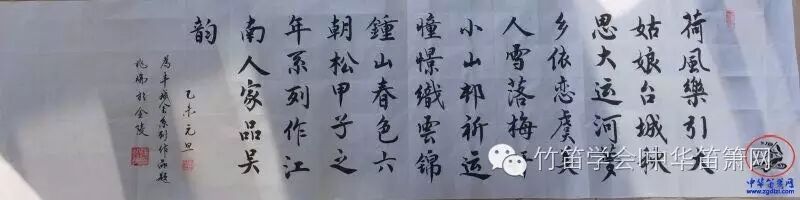 荷風樂引大
姑娘台城秋
思大运河夢
乡依恋虞美
人雪落梅
小山邨祈运
憧憬織雲锦
鍾山春色六
朝松甲子之
年系列作江
南人家品吴
韵
乙未元旦
系列作品題
於金陵
竹笛学会|中华笛箫网
中华笛箫网
www.zgdizi.com